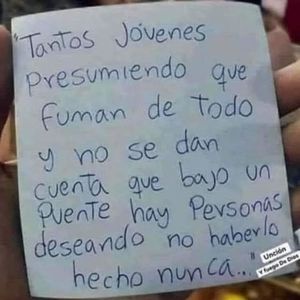 "Tantos Jóvenes
Presumiendo que
fuman de todo
y no se dan
cuenta que bajo un
puente hay Personas
deseando no haberlo
hecho nunca..."
Unción
Y fuego De Dios